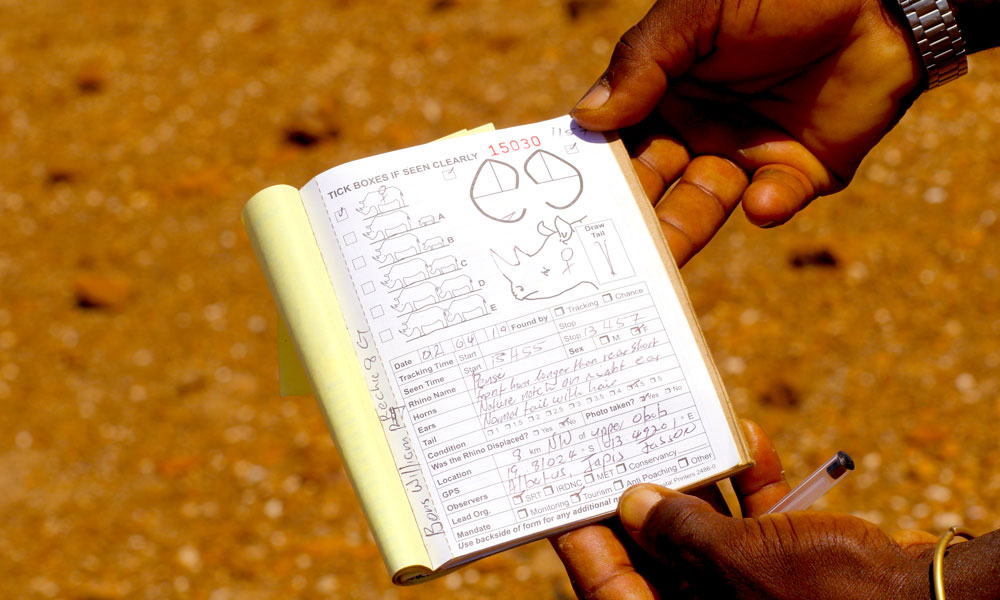 TICK BOXES IF SEEN CLEARLY 15030
A
B
C
D
E
Draw Tail
Date 02 04 19 Found by Tracking Chance
Tracking Time Start Stop
Seen Time Start 13455 Stop 13457
Rhino Name Sex M F
Horns front horn longer than rear short
Ears Nature notch on right ear
Tail Normal tail with hair
Condition 1 1.5 2 2.5 3 3.5 4 4.5 5
Was the Rhino Displaced? Yes No Photo taken? Yes No
Location 9 km NW of upper
GPS 19 31024 S 013 49201 E
Observers
Lead Org. SRT IRDNC MET Conservancy
Mandate Monitoring Tourism Anti Poaching Other
Use backside of form for any additional
Printers 2486-0
William